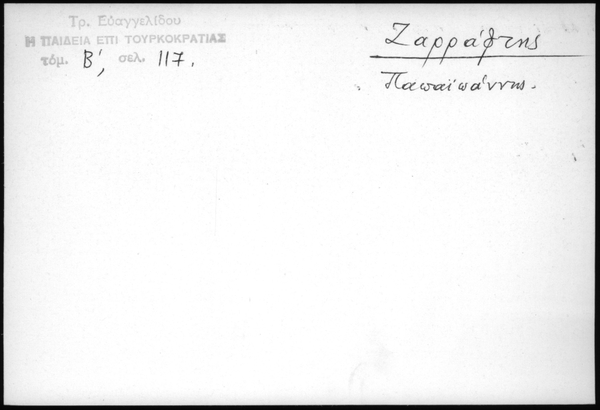 Τρ. Εὐαγγελίδου
Η ΠΑΙΔΕΙΑ ΕΠΙ ΤΟΥΡΚΟΚΡΑΤΙΑΣ
τόμ. Β΄, σελ. 117.
Ζαρράφτης
Παπαϊωάννης.